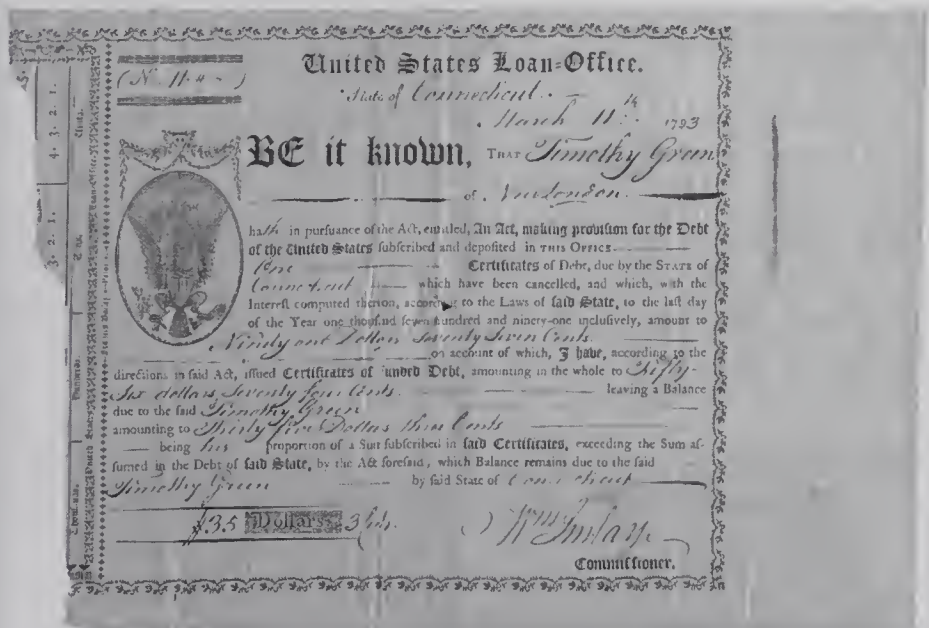 United States Loan=Office.
(No. 11
State of Connecticut.
March 11th 1793
BE it known, THAT Timothy Green
of New London
hath in pursuance of the Act, entitled, An Act, making provision for the Debt
of the United States subscribed and deposited in THIS OFFICE.
One Certificates of Debt, due by the STATE of
Connecticut which have been cancelled, and which, with the
Interest computed thereon, according to the Laws of said State, to the last day
of the Year one thousand seven hundred and ninety-one inclusively, amount to
Ninety one Dollars Seventy Seven Cents.
on account of which, I have, according to the
directions in said Act, issued Certificates of funded Debt, amounting in the whole to Fifty-
Six dollars, Seventy four Cents. leaving a Balance
due to the said Timothy Green
amounting to Thirty five Dollars three Cents
being his proportion of a Sum subscribed in said Certificates, exceeding the Sum as-
sumed in the Debt of said State, by the Act foresaid, which Balance remains due to the said
Timothy Green by said State of Connecticut
$35 Dollars 3 Cts.
Wm Imlay
Commissioner.
4. 3. 2. 1.
3. 2. 1.
Units.
Tens.
Hundreds.
Thousands.